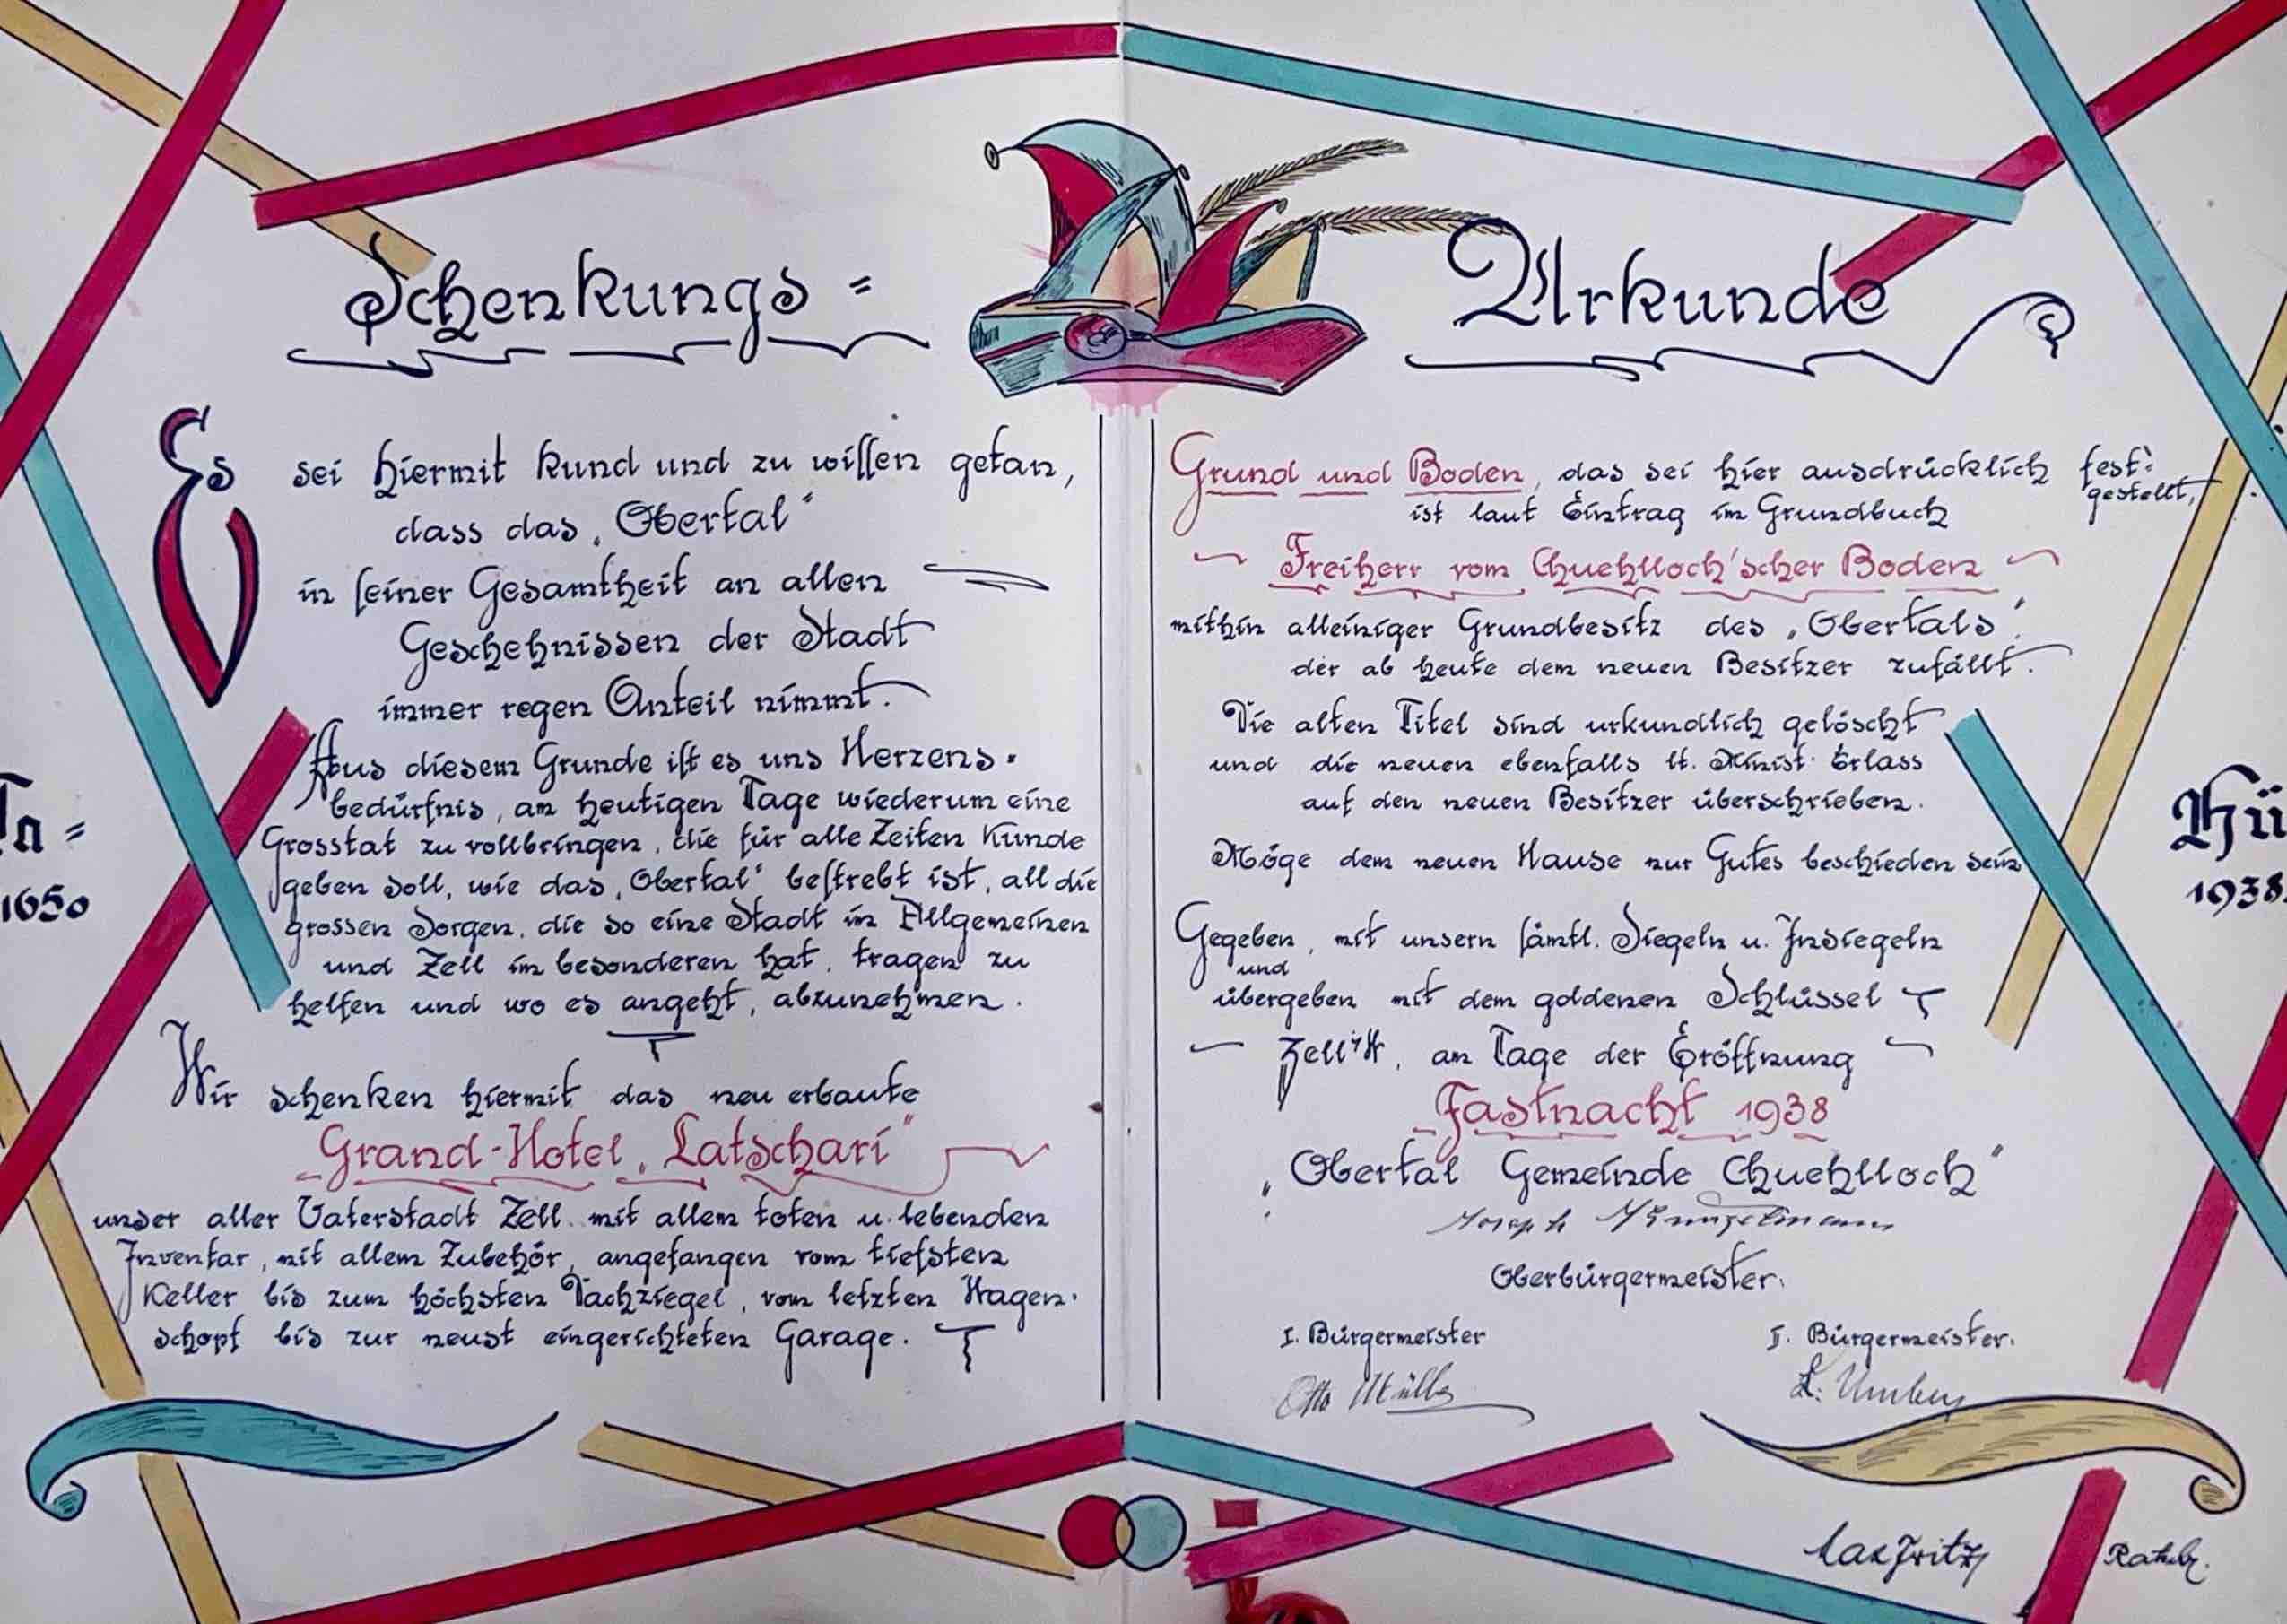 Schenkungs=
Urkunde
Es sei hiermit kund und zu wissen getan,
dass das „Obertal"
in seiner Gesamtheit an allen
Geschehnissen der Stadt
immer regen Anteil nimmt.
Aus diesem Grunde ist es uns Herzens-
bedürfnis, am heutigen Tage wiederum eine
Grosstat zu vollbringen, die für alle Zeiten Kunde
geben soll, wie das „Obertal" bestrebt ist, all die
grossen Sorgen, die so eine Stadt im Allgemeinen
und Zell im besonderen hat, tragen zu
helfen und wo es angeht, abzunehmen.
Wir schenken hiermit das neu erbaute
Grand-Hotel „Latschari"
unser aller Vaterstadt Zell mit allem toten u. lebenden
Inventar, mit allem Zubehör, angefangen vom tiefsten
Keller bis zum höchsten Dachziegel, vom letzten Wagen-
schopf bis zur neust eingerichteten Garage.
Grund und Boden, das sei hier ausdrücklich fest-
gestellt,
ist laut Eintrag im Grundbuch
Freiherr vom Chuehlloch'scher Boden
mithin alleiniger Grundbesitz des „Obertals"
der ab heute dem neuen Besitzer zufällt.
Die alten Titel sind urkundlich gelöscht
und die neuen ebenfalls lt. Minist. Erlass
auf den neuen Besitzer überschrieben.
Möge dem neuen Hause nur Gutes beschieden sein
Gegeben, mit unsern sämtl. Siegeln u. Insiegeln
und
übergeben mit dem goldenen Schlüssel
Zell i/W, am Tage der Eröffnung
Fastnacht 1938
„Obertal Gemeinde Chuehlloch"
Joseph
Oberbürgermeister.
I. Bürgermeister
II. Bürgermeister.
Otto Müller
L.
Fritz
Ratsh.
1650
1938.